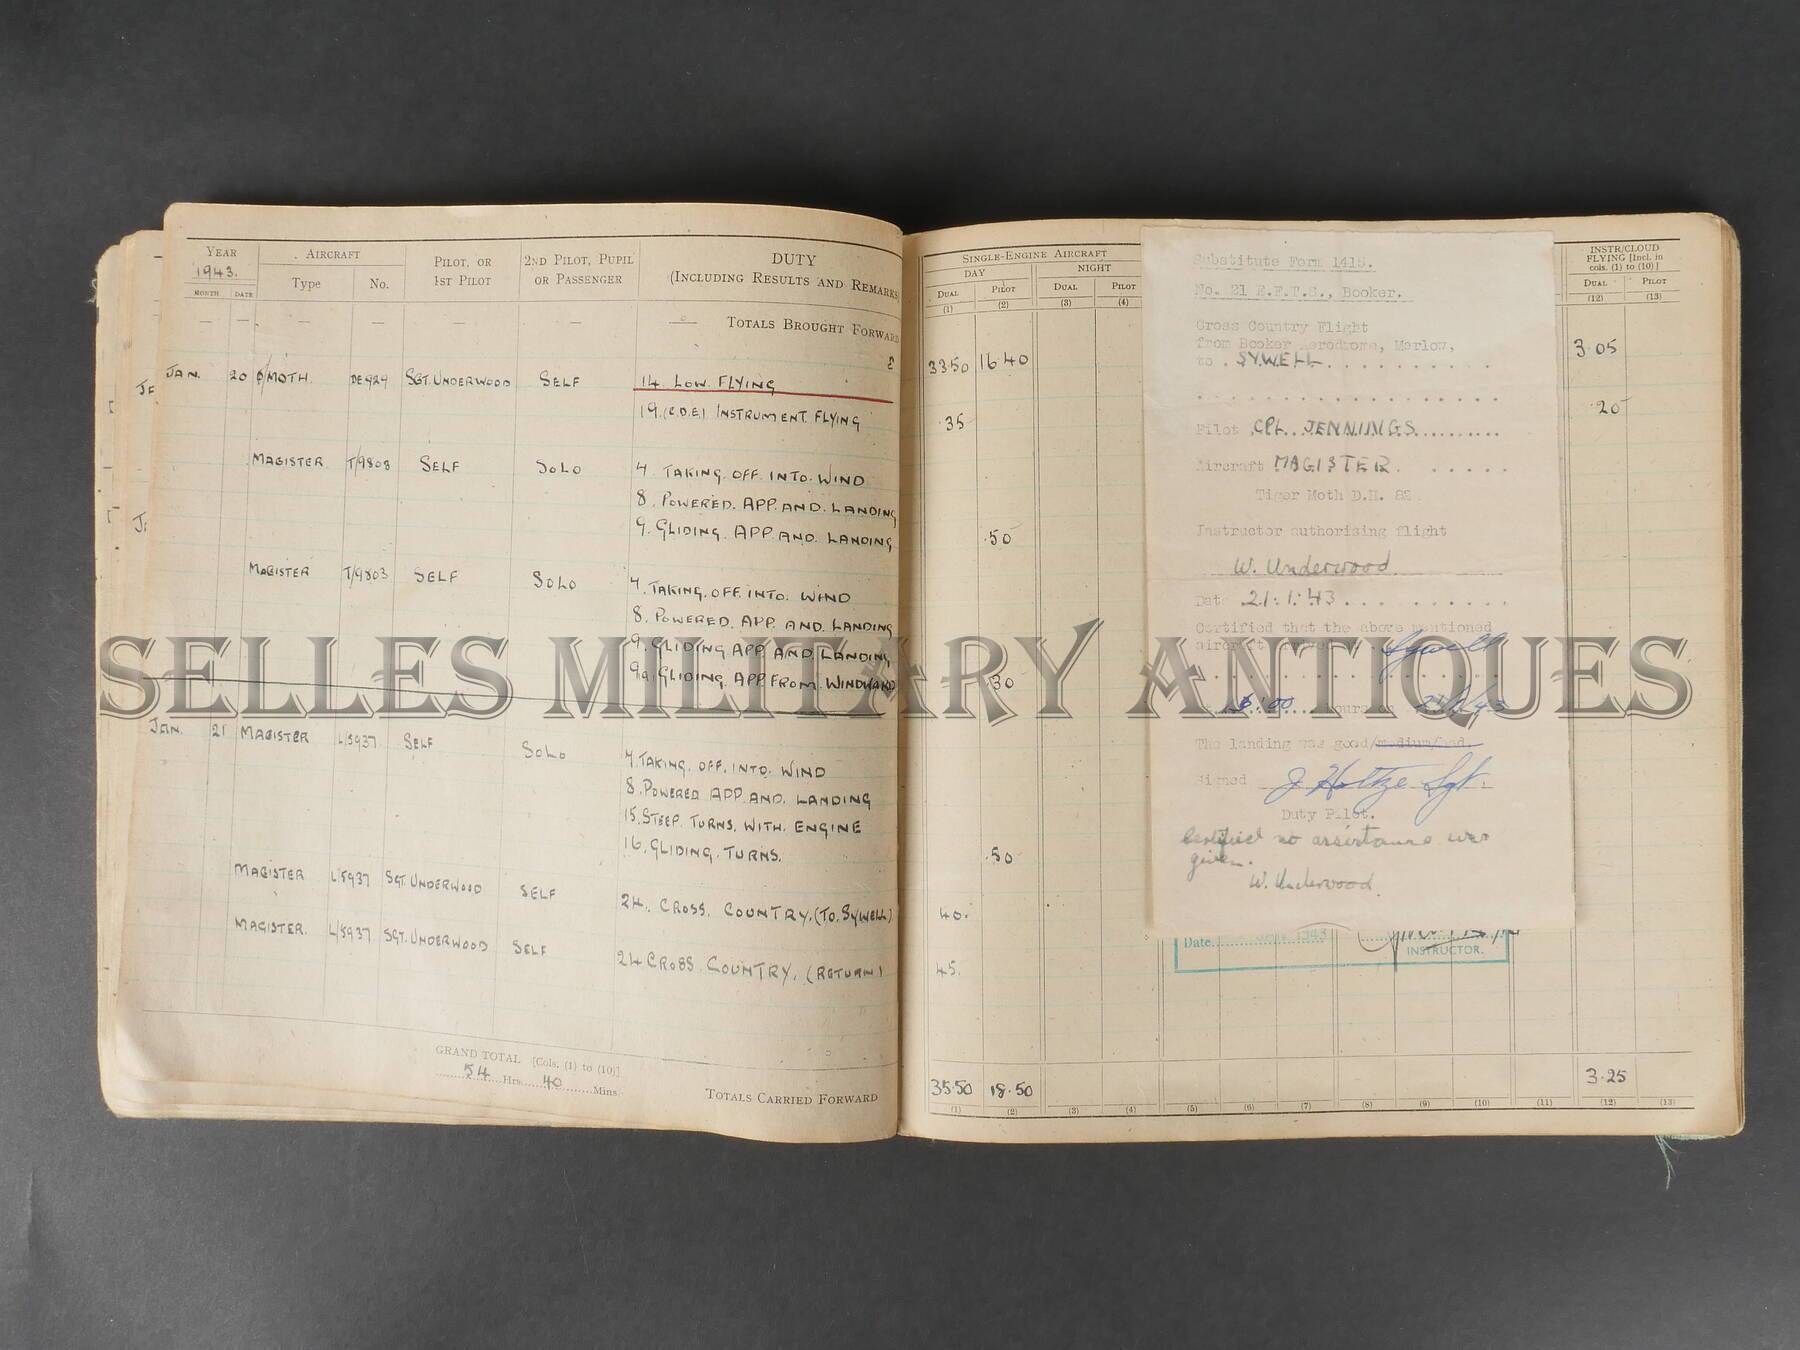 YEAR AIRCRAFT PILOT, OR 2ND PILOT, PUPIL DUTY
1943. Type No. 1ST PILOT OR PASSENGER (INCLUDING RESULTS AND REMARKS)
MONTH DATE
— — — — — — — TOTALS BROUGHT FORWARD
JAN. 20 MOTH. DE929 SGT. UNDERWOOD SELF 14. LOW FLYING
19. (C.D.E.) INSTRUMENT. FLYING
MAGISTER T/9803 SELF SOLO 4. TAKING. OFF. INTO. WIND
8. POWERED. APP. AND. LANDING
9. GLIDING. APP. AND. LANDING
MAGISTER T/9803 SELF SOLO 4. TAKING. OFF. INTO. WIND
8. POWERED. APP. AND. LANDING
9. GLIDING APP. AND. LANDING
9a. GLIDING. APP. FROM. WINDWARD
JAN. 21 MAGISTER L/5937 SELF SOLO 4. TAKING. OFF. INTO. WIND
8. POWERED APP. AND. LANDING
15. STEEP. TURNS. WITH. ENGINE
16. GLIDING. TURNS.
MAGISTER L/5937 SGT. UNDERWOOD SELF 24. CROSS. COUNTRY. (TO. SYWELL).
MAGISTER. L/5937 SGT. UNDERWOOD SELF 24 CROSS. COUNTRY. (RETURN)
GRAND TOTAL [Cols. (1) to (10)]
54 Hrs. 40 Mins.
TOTALS CARRIED FORWARD
SINGLE-ENGINE AIRCRAFT
DAY NIGHT
DUAL PILOT DUAL PILOT
(1) (2) (3) (4)
33.50 16.40
.35
.50
.30
.50
.40.
.45.
35.50 18.50
(1) (2) (3) (4) (5) (6) (7) (8) (9) (10) (11) (12) (13)
Substitute Form 1415.
No. 21 E.F.T.S., Booker.
Cross Country Flight
from Booker Aerodrome, Marlow,
to SYWELL
Pilot CPL. JENNINGS
Aircraft MAGISTER
Tiger Moth D.H. 82
Instructor authorising flight
W. Underwood
Date 21.1.43
Certified that the above mentioned
aircraft arrived at Sywell
hours on
The landing was good/medium/bad.
Signed J Holtze Sgt.
Duty Pilot.
Certified no assistance was
given.
W. Underwood.
Date 1943
INSTRUCTOR.
INSTR/CLOUD
FLYING [Incl. in
cols. (1) to (10)]
DUAL PILOT
(12) (13)
3.05
.20
3.25
SELLES MILITARY ANTIQUES